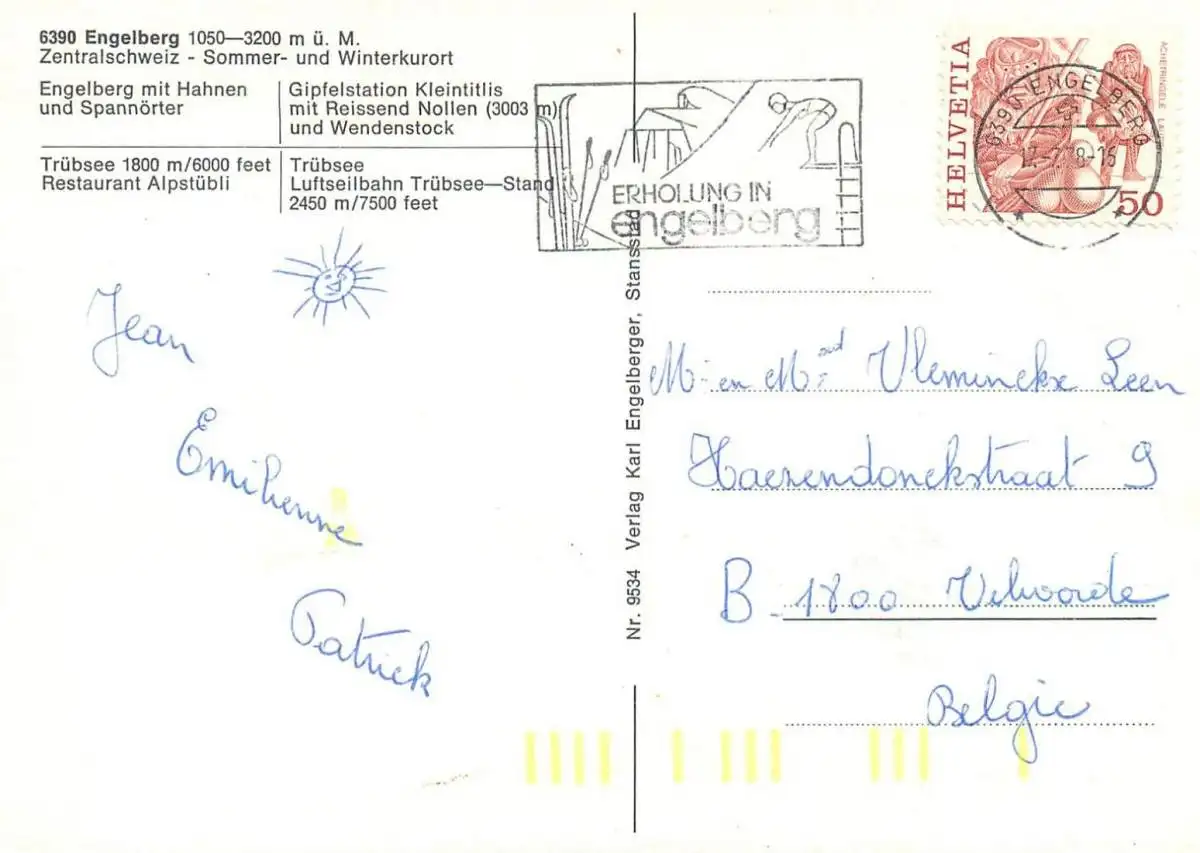 6390 Engelberg 1050—3200 m ü. M.
Zentralschweiz - Sommer- und Winterkurort
Engelberg mit Hahnen
und Spannörter
Gipfelstation Kleintitlis
mit Reissend Nollen (3003 m)
und Wendenstock
Trübsee 1800 m/6000 feet
Restaurant Alpstübli
Trübsee
Luftseilbahn Trübsee—Stand
2450 m/7500 feet
ERHOLUNG IN
engelberg
HELVETIA
ACHETRINGELE
50
6390 ENGELBERG
Jean
Emilienne
Patrick
Nr. 9534 Verlag Karl Engelberger, Stansstad
M. en M. Vleminckx Leen
Haezendonckstraat 9
B - 1800 Vilvoorde
Belgie